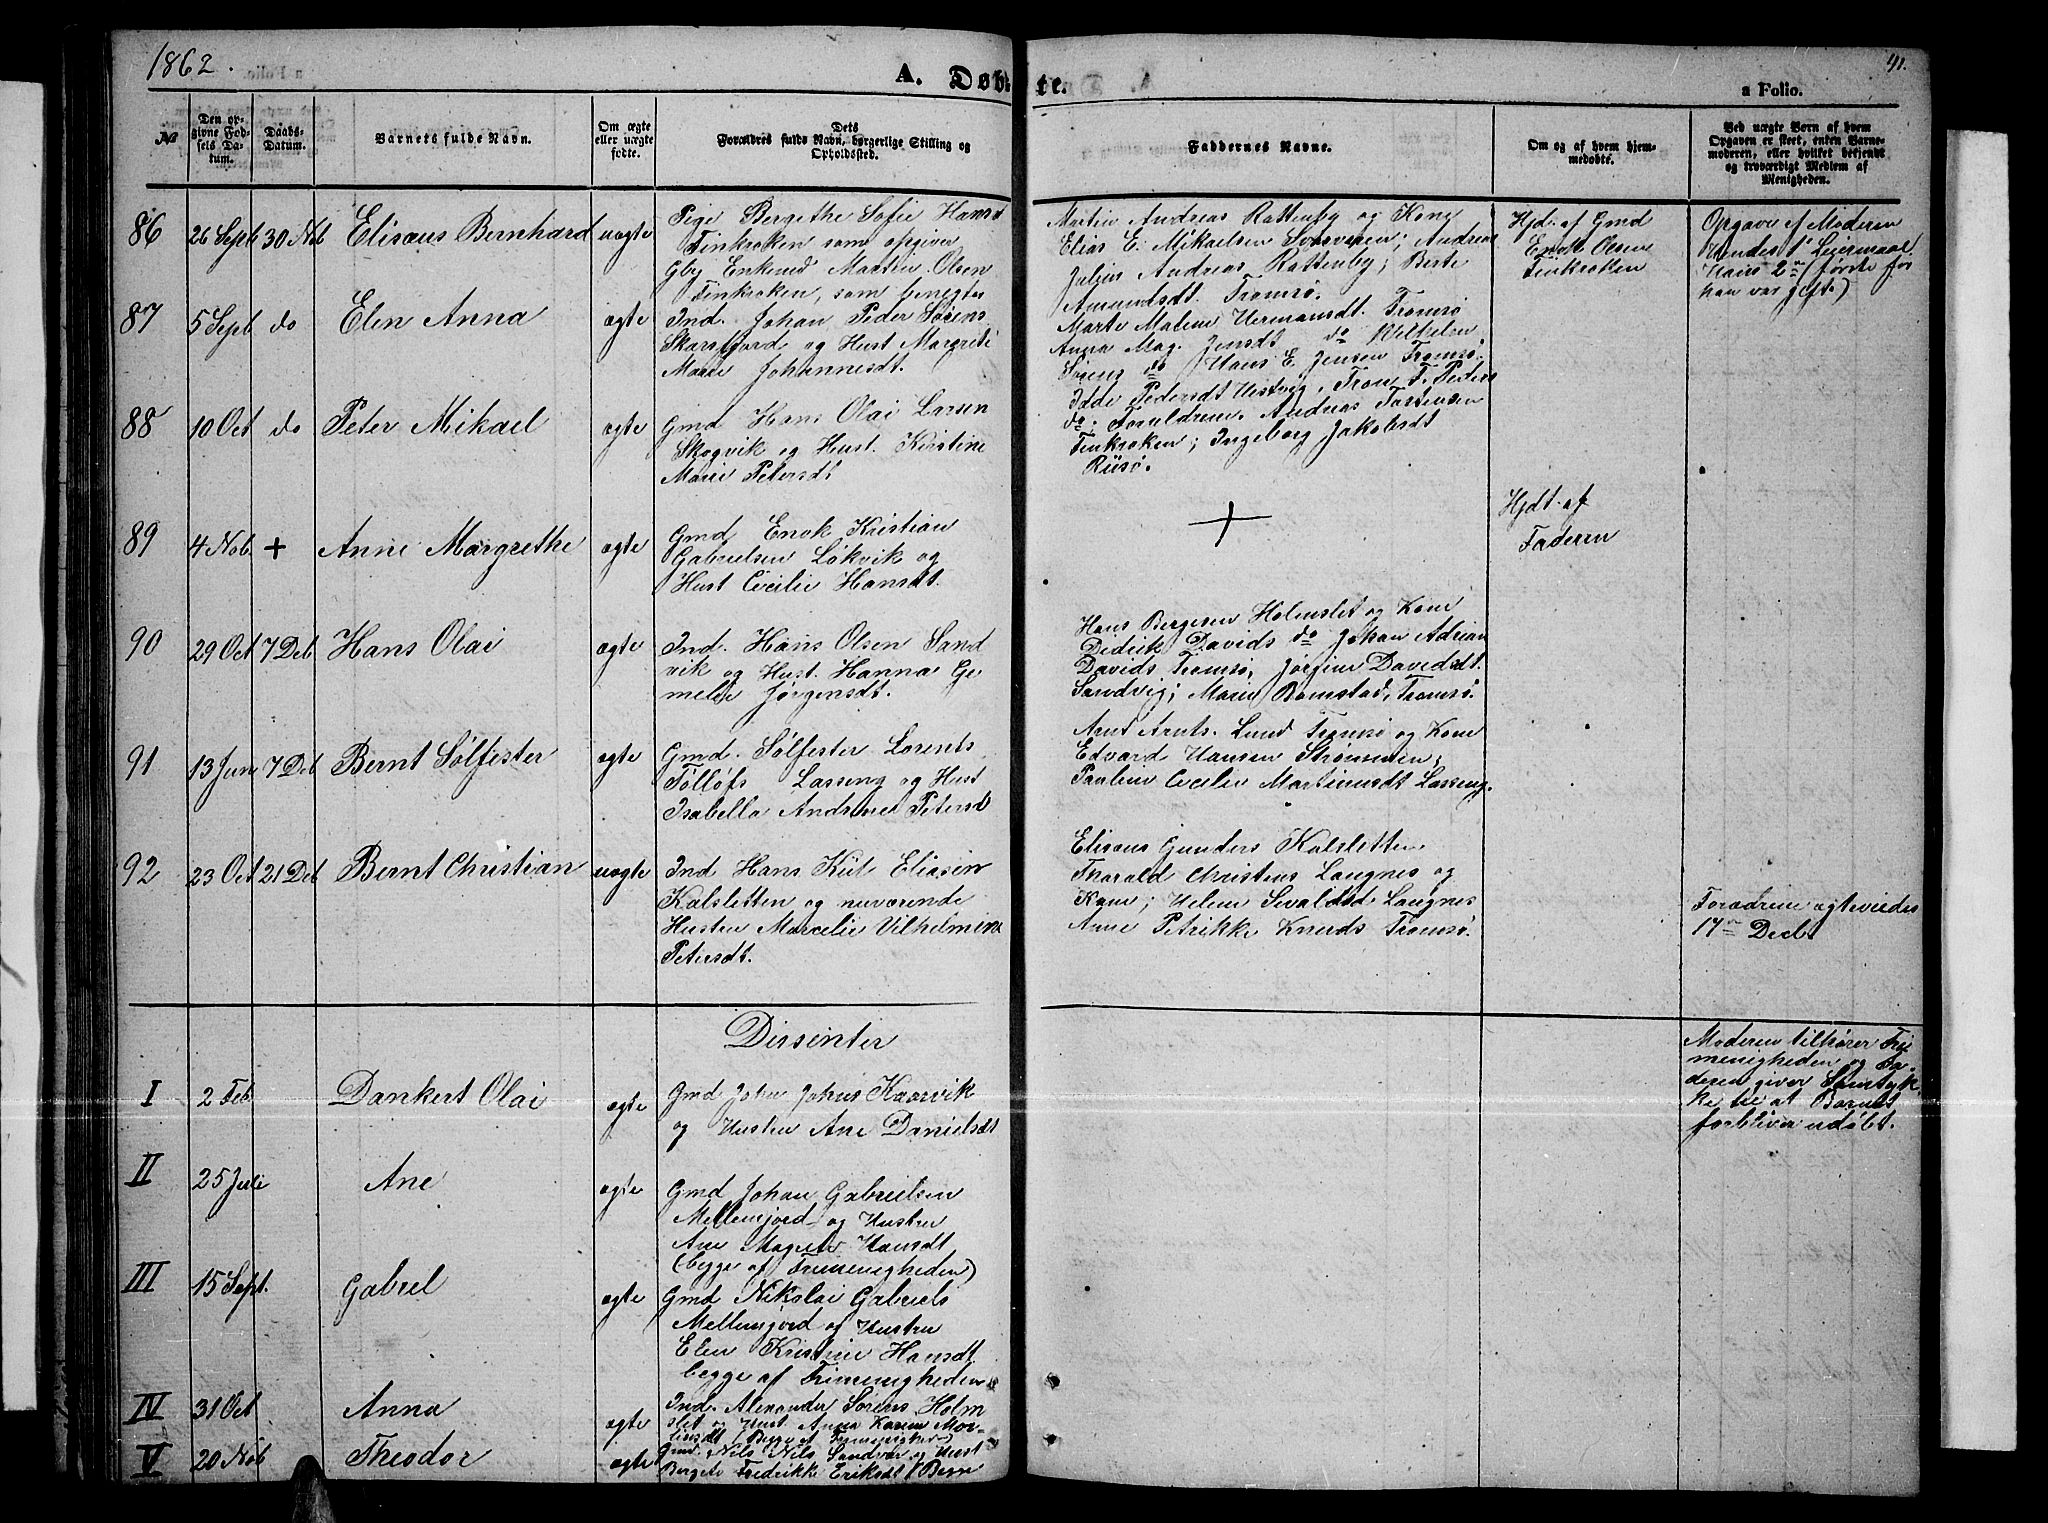 1862.
A. Døbte.
41.
a Folio.
№
Den opgivne Fødsels Datum.
Daabs-Datum.
Barnets fulde Navn.
Om ægte eller uægte fødte.
Dets Forældres fulde Navn, borgerlige Stilling og Opholdssted.
Faddernes Navne.
Om og af hvem hjemmedøbte.
Ved uægte Børn af hvem Opgaven er skeet, enten Barnemoderen, eller hvilket bekjendt og troværdigt Medlem af Menigheden.
86
26 Sept
30 Nob
Elisæus Bernhard
uægte
Pige Bergethe Sofie Hansd
Finkroken som opgiver
Gby Enkemd Martin Olsen
Finkroken, som benegter
Martin Andreas Rattenby og Kone
Elias E. Mikaelsen ; Andreas
Julius Andreas Rattenby; Berte
Amundsdt. Tromsø.
Hjd. af Gmd
Enok Olsen
Finkroken
Opgave af Moderen
Hendes 1' Leiermaal
Hans 2 (første før
han var gift)
87
5 Sept
do
Elen Anna
ægte
Ind. Johan Peder Sørens
Skarsfjord og Hust Margrete
Marie Johannesdt.
Marte Malene Hermansdt. Tromsø
Anna Mag. Jensdt do Vilhelm
Sørens do Hans E. Jensen Tromsø.
88
10 Oct
do
Peter Mikael
ægte
Gmd Hans Olai Larsen
Skogvik og Hust. Kirstine
Marie Petersdt
Idde Pedersdt Vestvig, Trone T. Peters
do; Forældrene. Andreas Torstensen
Finkroken; Ingeborg Jakobsdt
Risø.
89
4 Nob.
+
Anne Margrethe
ægte
Gmd Enok Kristian
Gabrielsen Løkvik og
Hust Cecilie Hansdt.
+
Hjdt. af
Faderen
90
29 Oct
7 Deb
Hans Olai
ægte
Ind. Hans Olsen Sand
vik og Hust. Hanna Ge
melie Jørgensdt.
Hans Bergesen Holmslet og Kone
Didrik Davids do Johan Adrian
Davids Tromsø, Jørgine Davidsdt.
Sandvig; Marie Bomstad, Tromsø.
91
13 Juni
7 Deb
Bernt Sølfester
ægte
Gmd. Sølfester Lorents
Tølløfs Lasseng og Hust
Isabella Andrine Petersd
Arnt Arnts. Lund Tromsø og Kone
Edvard Hansen Strømmen;
Pauline Cecilie Martinusdt Lasseng.
92
23 Oct
21 Deb
Bernt Christian
uægte
Ind Hans Kiil Eliasen
Kalsletten og nuværende
Hustru Marcelie Vilhelmine
Petersdt.
Elisæus Gunders Kalsletten
Tharald Christens Langnes og
Kone; Helene Sivaldsd Langnes
Anne Petrikke Knuds Tromsø.
Forædrene ægteviedes
17 Decb
Dissenter
I
2 Feb
Dankert Olai
ægte
Gmd John Johns Kaarvik
og Hustru Ane Danielsdt
Moderen tilhører Fri
menigheden og Fa-
deren giver Samtyk-
ke til at Barnet
forbliver udøbt.
II
25 Juli
Ane
ægte
Gmd Johan Gabrielsen
Mellemjord og Hustru
Ane Magrete Hansdt
(begge af Frimenigheden)
III
15 Sept.
Gabrel
ægte
Gmd Nikolai Gabriels
Mellemjord og Hustru
Elen Kristine Hansdt
begge af Frimenigheden
IV
31 Oct
Anna
ægte
Ind. Alexander Sørens Holm
slet og Hust. Anna Karen Mor-
tensdt (Begge af Frimenigheden)
V
20 Nob
Theodor
ægte
Gmd. Nils Nils Sandvær og Hust
Bergete Fredrikke Eriksdt